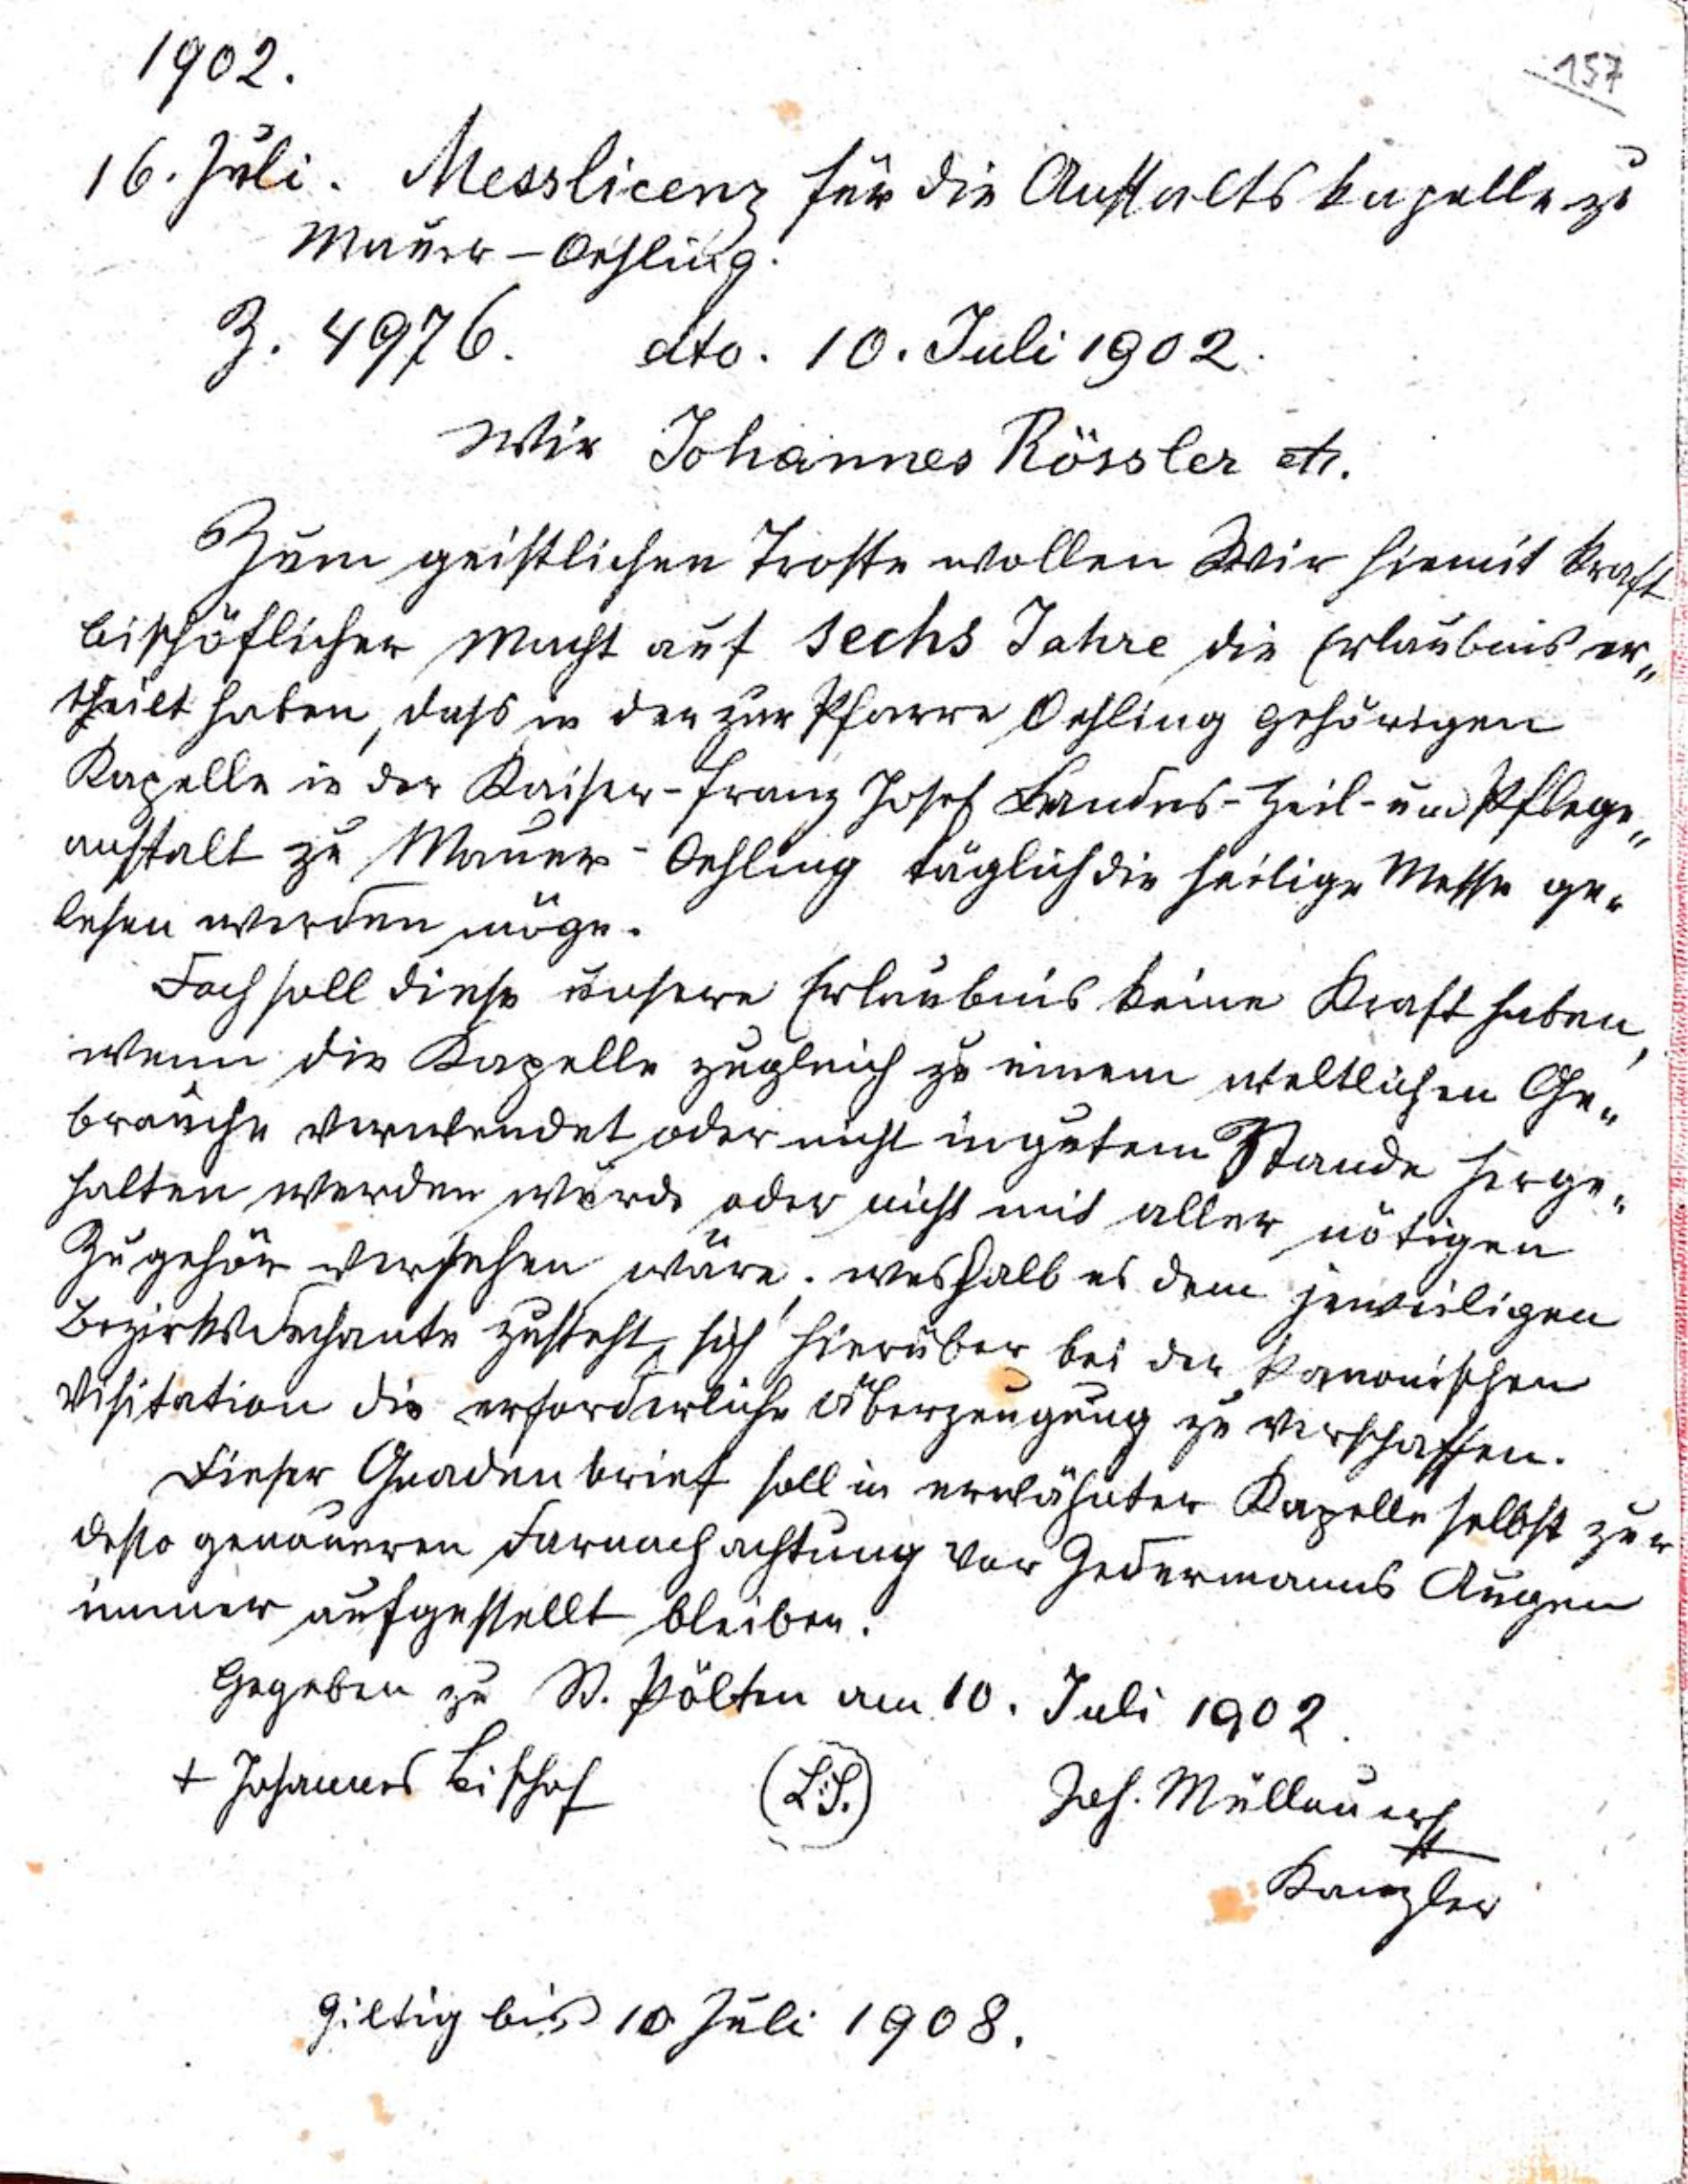 1902.
157
16. Juli. Messlicenz für die Anstaltskapelle zu
Mauer-Oehling.
Z. 4976. dto. 10. Juli 1902.
Wir Johannes Rössler etc.
Zum geistlichen Troste wollen Wir hiemit kraft
bischöflicher Macht auf sechs Jahre die Erlaubnis er„
theilt haben, daß in der zur Pfarre Oehling gehörigen
Kapelle in der Kaiser-Franz Josef Landes-Heil-und Pflege„
anstalt zu Mauer-Oehling täglich die heilige Messe ge„
lesen werden möge.
Doch soll diese unsere Erlaubnis keine Kraft haben,
wenn die Kapelle zugleich zu einem weltlichen Ge„
brauche verwendet oder nicht in gutem Stande herge„
halten werden würde oder nicht mit aller nötigen
Zugehör versehen wäre; weshalb es dem jeweiligen
Bezirksdechante zusteht, sich hierüber bei der kanonischen
Visitation die erforderliche Überzeugung zu verschaffen.
Dieser Gnadenbrief soll in erwähnter Kapelle selbst zur
desto genaueren Darnachachtung vor Jedermanns Augen
immer aufgestellt bleiben.
Gegeben zu St. Pölten am 10. Juli 1902.
+ Johannes Bischof (L.S.) Joh. Müllauer
Kanzler
Giltig bis 10 Juli 1908.